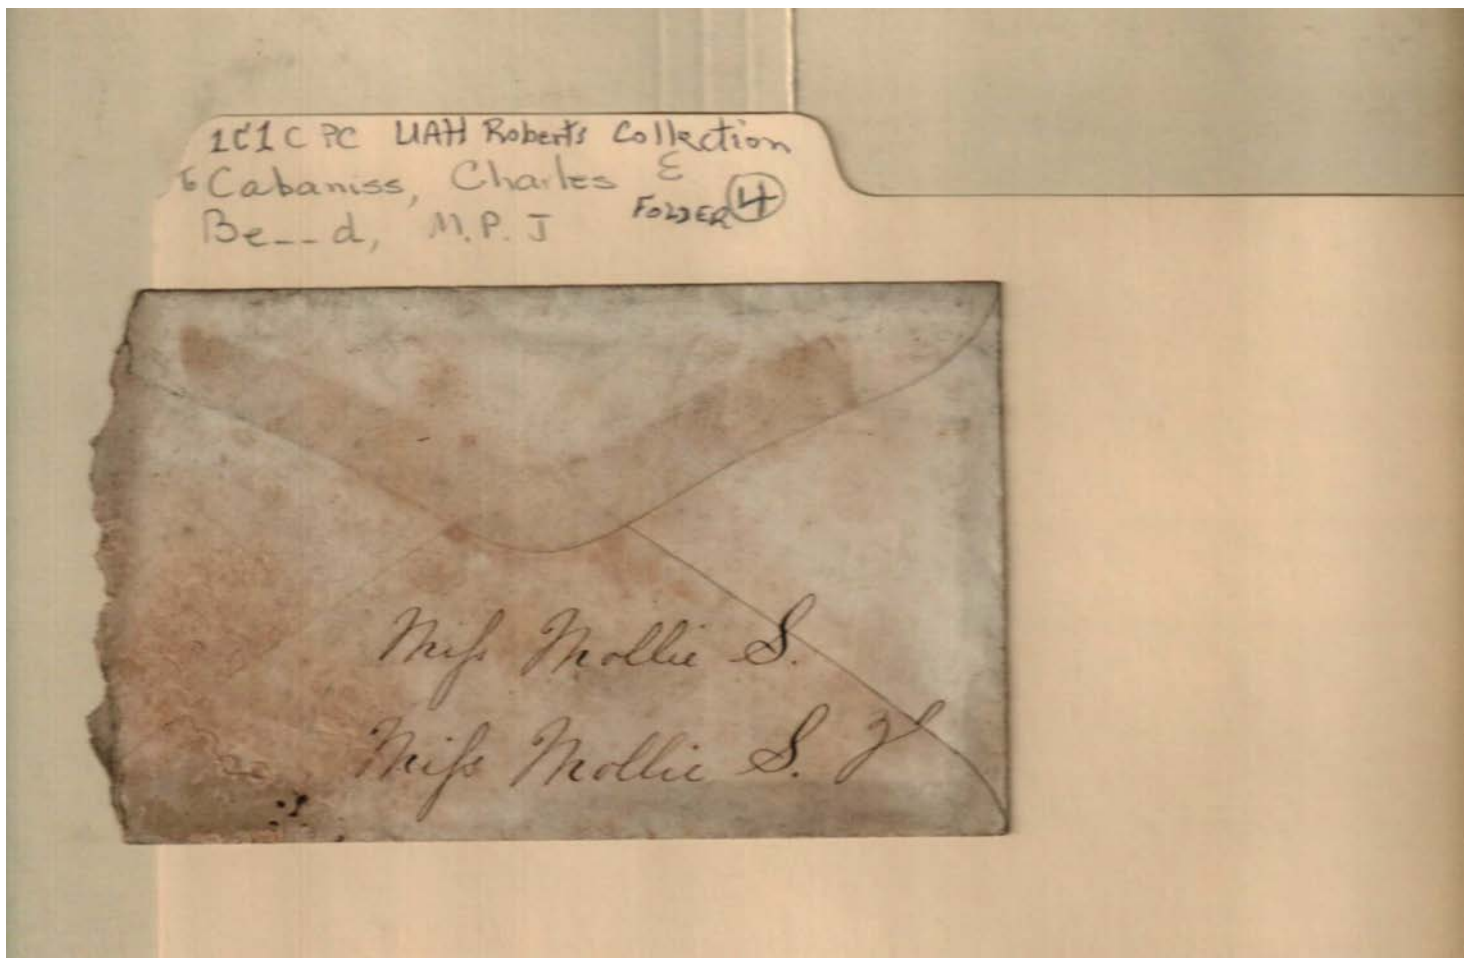 1C1C PC UAH Roberts Collection
Cabaniss, Charles E
Be__d, M.P.J
FOLDER 4
Miss Mollie S.
Miss Mollie S.